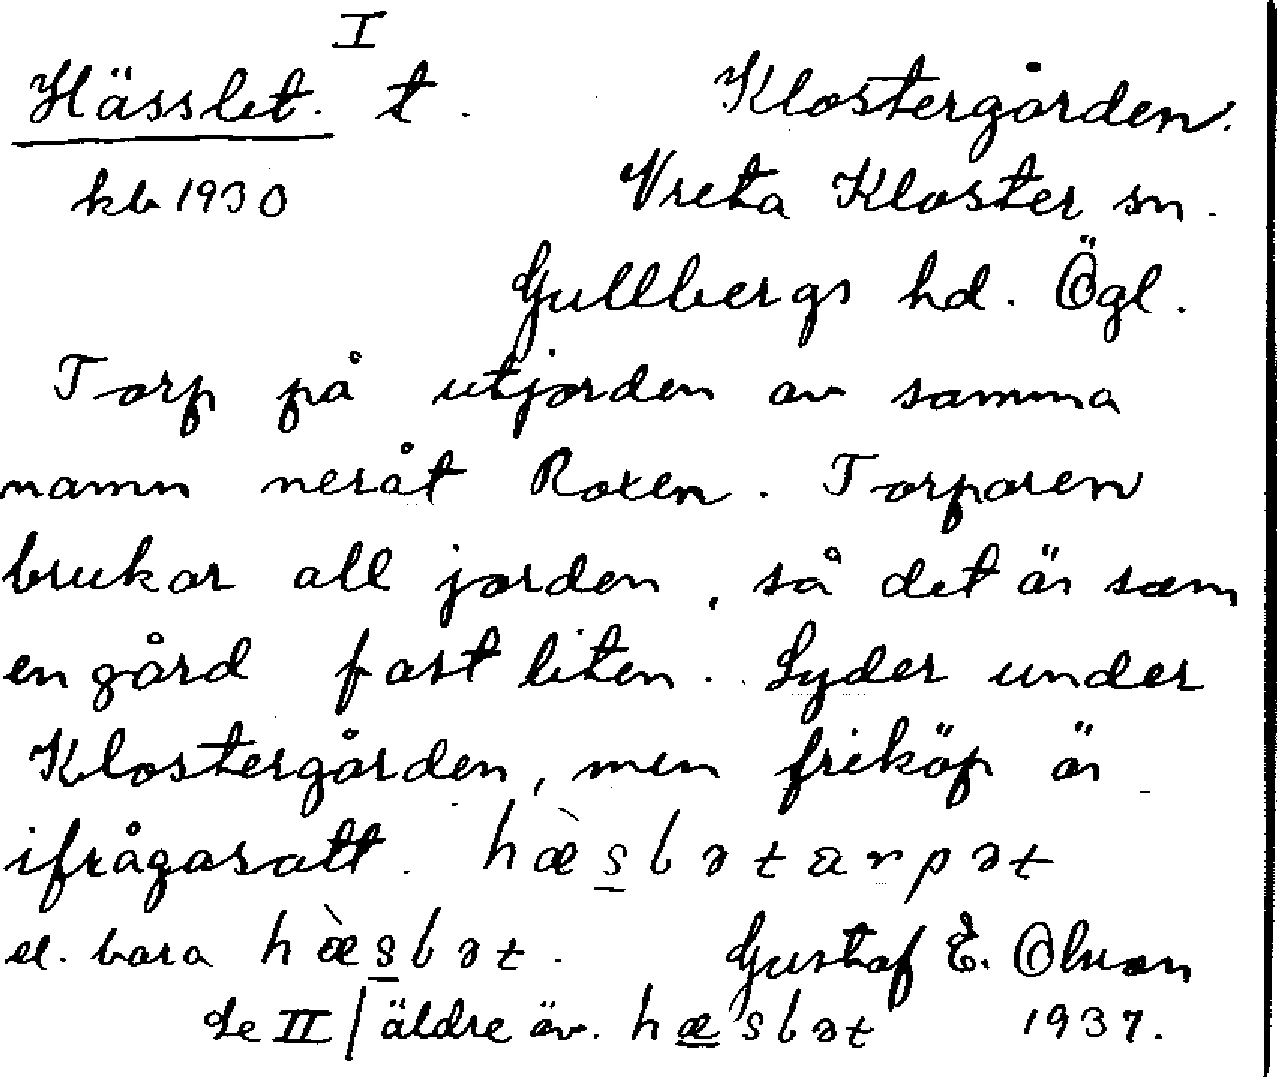 I
Hässlet. t. Klostergården.
kb 1930 Vreta Kloster sn.
Gullbergs hd. Ögl.
Torp på utjorden av samma
namn neråt Roxen. Torparen
brukar all jorden, så det är som
en gård fast liten. Lyder under
Klostergården, men friköp är
ifrågasatt. hæ̀sləttarpət
el. bara hæ̀slət. Gustaf E. Olson
Se II / äldre äv. hæslət 1937.